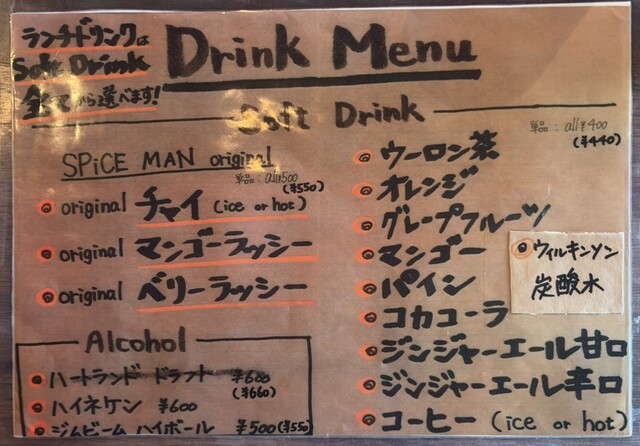 ランチドリンクは
Soft Drink
全てから選べます!
Drink Menu
Soft Drink
単品：all¥400
(¥440)
SPiCE MAN original
単品：all¥500
(¥550)
original チャイ (ice or hot)
original マンゴーラッシー
original ベリーラッシー
Alcohol
ハートランド ドラフト ¥600
(¥660)
ハイネケン ¥600
ジムビーム ハイボール ¥500(¥550)
ウーロン茶
オレンジ
グレープフルーツ
マンゴー
パイン
コカコーラ
ジンジャーエール甘口
ジンジャーエール辛口
コーヒー (ice or hot)
ウィルキンソン
炭酸水